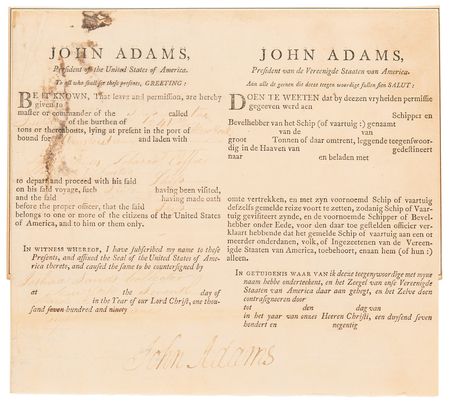 JOHN ADAMS,
President of the United States of America.
To all who shall see these presents, GREETING:
BE IT KNOWN, That leave and permission, are hereby
given to
master or commander of the called
of the burthen of
tons or thereabouts, lying at present in the port of
bound for and laden with
to depart and proceed with his said
on his said voyage, such having been visited,
and the said having made oath
before the proper officer, that the said
belongs to one or more of the citizens of the United States
of America, and to him or them only.
IN WITNESS WHEREOF, I have subscribed my name to these
Presents, and affixed the Seal of the United States of Ame-
rica thereto, and caused the same to be countersigned by
at the day of
in the Year of our Lord Christ, one thou-
sand seven hundred and ninety
JOHN ADAMS,
President van de Vereenigde Staaten van America.
Aan alle de geenen die deeze tegen woordige sullen sien SALUT:
DOEN TE WEETEN dat by deezen vryheiden permissie
gegeven werd aen
Schipper en
Bevelhebber van het Schip (of vaartuig:) genaamt
van de van
groot Tonnen of daar omtrent, leggende teegenswoor-
dig in de Haaven van gedestineert
naar en beladen met
omte vertrekken, en met zyn voornoemd Schip of vaartuig
desselfs gemelde reize voort te zetten, zodanig Schip of Vaar-
tuig gevisiteert zynde, en de voornoemde Schipper of Bevel-
hebber onder Eede, voor den daar toe gestelden officier ver-
klaart hebbende dat het gemelde Schip of vaartuig aan een of
meerder onderdanen, volk, of Ingezetenen van de Vereenig-
de Staaten van America, toebehoort, enaan hem (of hun:)
alleen.
IN GETUIGENIS WAAR VAN ik deeze teegenswoordige met myne
naam hebbe ondertekent, en het Zeegel van onse Vereenigde
Staaten van America daar aan gehegt, en het Zelve doen
contrasigneeren door
tot den dag van
in het jaar van onzes Heeren Christi, een duysend seven
hondert en negentig
John Adams